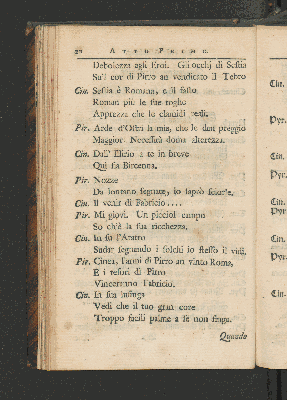 20 ATTO PRIMO.
Debolezza agli Eroi. Gli occhj di Sestia
Su'l cor di Pirro an vendicato il Tebro
Cin. Sestia è Romana, e il fasto
Roman più le sue toghe
Apprezza che le clamidi
Pir. Arde d'Ostri la mia, che le dan preggio
Maggior. Necessità doma alterezza.
Cin. Dall' Elisio a te in breve
Qui fia Bircenna.
Pir. Nozze
Da lontano segnate, io saprò sciorle.
Cin. Il venir di Fabricio....
Pir. Mi giovi. Un picciol campo
So ch'è la sua ricchezza.
Cin. In su l'Aratro
Sudar segnando i solchi io stesso il vidi.
Pir. Cinea, l'armi di Pirro an vinto Roma,
E i tesori di Pirro
Vinceranno Fabricio.
Cin. Ei sua
Vedi che il tuo gran core
Troppo facili palme a sè non finga.
Quando
Cin.
Pyr.
Cin.
Pyr.
Cin.
Pyr.
Cin.